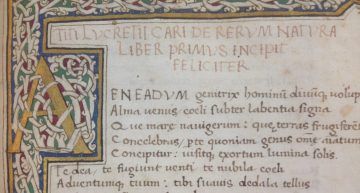 TITI LUCRETII CARI DE RERUM NATURA
LIBER PRIMUS INCIPIT
FELICITER
AENEADUM genitrix hominū divūque volup
Alma venus: coeli subter labentia signa
Que mare navigerum: que terras frugiferent
Concelebras, per te quoniam genus omne
Concipitur: visitque exortum lumina solis.
Te dea, te fugiunt venti te nubila coeli
Adventumque tuum: tibi suavis dedala tellus